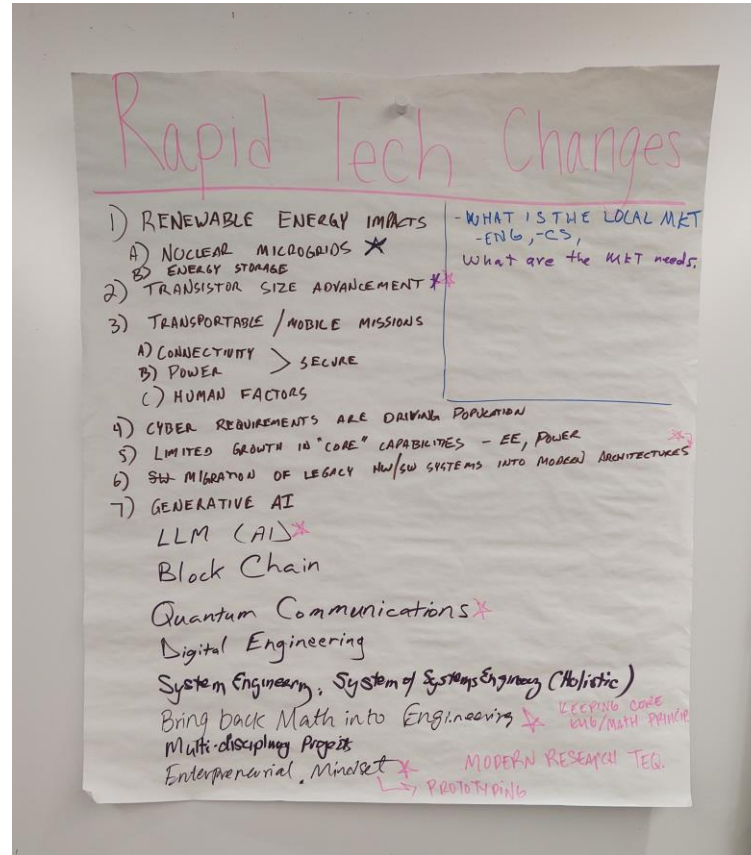 Rapid Tech Changes
1) RENEWABLE ENERGY IMPACTS
A) NUCLEAR MICROGRIDS
B) ENERGY STORAGE
2) TRANSISTOR SIZE ADVANCEMENT
3) TRANSPORTABLE / MOBILE MISSIONS
A) CONNECTIVITY
B) POWER > SECURE
C) HUMAN FACTORS
- WHAT IS THE LOCAL MKT
-ENG, -CS,
What are the MKT needs.
4) CYBER REQUIREMENTS ARE DRIVING POPULATION
5) LIMITED GROWTH IN "CORE" CAPABILITIES - EE, POWER
6) SW MIGRATION OF LEGACY HW/SW SYSTEMS INTO MODERN ARCHITECTURES
7) GENERATIVE AI
LLM (AI)
Block Chain
Quantum Communications
Digital Engineering
System Engineering, System of Systems Engineey (Holistic)
Bring back Math into Engineering
KEEPING CORE
ENG/MATH PRINCIP
Multi-disciplinay Projects
MODERN RESEARCH TEQ.
Enterpreneurial Mindset
PROTOTYPING